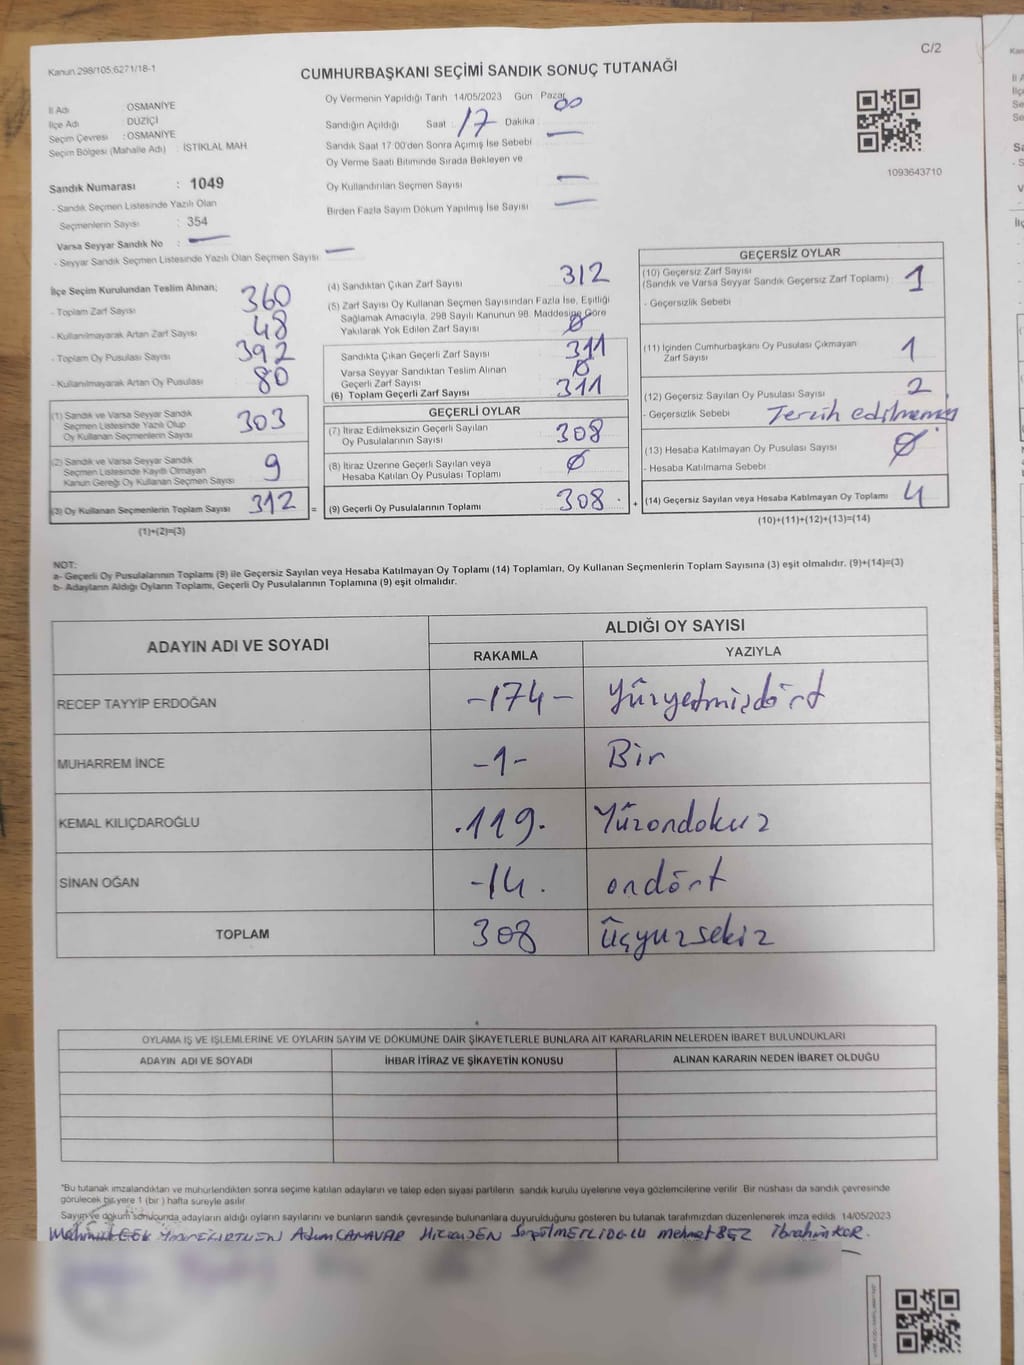 C/2
Kanun 298/105;6271/18-1
CUMHURBAŞKANI SEÇİMİ SANDIK SONUÇ TUTANAĞI
İl Adı OSMANİYE
İlçe Adı DÜZİÇİ
Seçim Çevresi : OSMANİYE
Seçim Bölgesi (Mahalle Adı) : İSTİKLAL MAH
Sandık Numarası : 1049
- Sandık Seçmen Listesinde Yazılı Olan
Seçmenlerin Sayısı : 354
Varsa Seyyar Sandık No :
- Seyyar Sandık Seçmen Listesinde Yazılı Olan Seçmen Sayısı:
Oy Vermenin Yapıldığı Tarih 14/05/2023 Gün Pazar
Sandığın Açıldığı Saat : 17 Dakika : 00
Sandık Saat 17.00'den Sonra Açımış İse Sebebi
Oy Verme Saati Bitiminde Sırada Bekleyen ve
Oy Kullandırılan Seçmen Sayısı
Birden Fazla Sayım Döküm Yapılmış İse Sayısı
1093643710
İlçe Seçim Kurulundan Teslim Alınan;
- Toplam Zarf Sayısı 360
- Kullanılmayarak Artan Zarf Sayısı 48
- Toplam Oy Pusulası Sayısı 392
- Kullanılmayarak Artan Oy Pusulası 80
(1) Sandık ve Varsa Seyyar Sandık
Seçmen Listesinde Yazılı Olup
Oy Kullanan Seçmenlerin Sayısı 303
(2) Sandık ve Varsa Seyyar Sandık
Seçmen Listesinde Kayıtlı Olmayan
Kanun Gereği Oy Kullanan Seçmen Sayısı 9
(3) Oy Kullanan Seçmenlerin Toplam Sayısı 312 =
(1)+(2)=(3)
(4) Sandıktan Çıkan Zarf Sayısı 312
(5) Zarf Sayısı Oy Kullanan Seçmen Sayısından Fazla İse, Eşitliği
Sağlamak Amacıyla, 298 Sayılı Kanunun 98. Maddesine Göre
Yakılarak Yok Edilen Zarf Sayısı 0
Sandıkta Çıkan Geçerli Zarf Sayısı 311
Varsa Seyyar Sandıktan Teslim Alınan
Geçerli Zarf Sayısı 0
(6) Toplam Geçerli Zarf Sayısı 311
GEÇERLİ OYLAR
(7) İtiraz Edilmeksizin Geçerli Sayılan
Oy Pusulalarının Sayısı 308
(8) İtiraz Üzerine Geçerli Sayılan veya
Hesaba Katılan Oy Pusulası Toplamı 0
(9) Geçerli Oy Pusulalarının Toplamı 308 +
GEÇERSİZ OYLAR
(10) Geçersiz Zarf Sayısı
(Sandık ve Varsa Seyyar Sandık Geçersiz Zarf Toplamı) 1
- Geçersizlik Sebebi
(11) İçinden Cumhurbaşkanı Oy Pusulası Çıkmayan
Zarf Sayısı 1
(12) Geçersiz Sayılan Oy Pusulası Sayısı 2
- Geçersizlik Sebebi Tercih edilmemiş
(13) Hesaba Katılmayan Oy Pusulası Sayısı 0
- Hesaba Katılmama Sebebi
(14) Geçersiz Sayılan veya Hesaba Katılmayan Oy Toplamı 4
(10)+(11)+(12)+(13)=(14)
NOT:
a- Geçerli Oy Pusulalarının Toplamı (9) ile Geçersiz Sayılan veya Hesaba Katılmayan Oy Toplamı (14) Toplamları, Oy Kullanan Seçmenlerin Toplam Sayısına (3) eşit olmalıdır. (9)+(14)=(3)
b- Adayların Aldığı Oyların Toplamı, Geçerli Oy Pusulalarının Toplamına (9) eşit olmalıdır.
ADAYIN ADI VE SOYADI ALDIĞI OY SAYISI
RAKAMLA YAZIYLA
RECEP TAYYİP ERDOĞAN -174- Yüzyetmişdört
MUHARREM İNCE -1- Bir
KEMAL KILIÇDAROĞLU .119. Yüzondokuz
SİNAN OĞAN -14. ondört
TOPLAM 308 üçyüzsekiz
OYLAMA İŞ VE İŞLEMLERİNE VE OYLARIN SAYIM VE DÖKÜMÜNE DAİR ŞİKAYETLERLE BUNLARA AİT KARARLARIN NELERDEN İBARET BULUNDUKLARI
ADAYIN ADI VE SOYADI İHBAR İTİRAZ VE ŞİKAYETİN KONUSU ALINAN KARARIN NEDEN İBARET OLDUĞU
*Bu tutanak imzalandıktan ve mühürlendikten sonra seçime katılan adayların ve talep eden siyasi partilerin sandık kurulu üyelerine veya gözlemcilerine verilir. Bir nüshası da sandık çevresinde
görülecek bir yere 1 (bir) hafta süreyle asılır.
Sayım ve döküm sonucunda adayların aldığı oyların sayılarını ve bunların sandık çevresinde bulunanlara duyurulduğunu gösteren bu tutanak tarafımızdan düzenlenerek imza edildi. 14/05/2023
Mahmut Adem CANAVAR Mehmet İbrahim KOR.